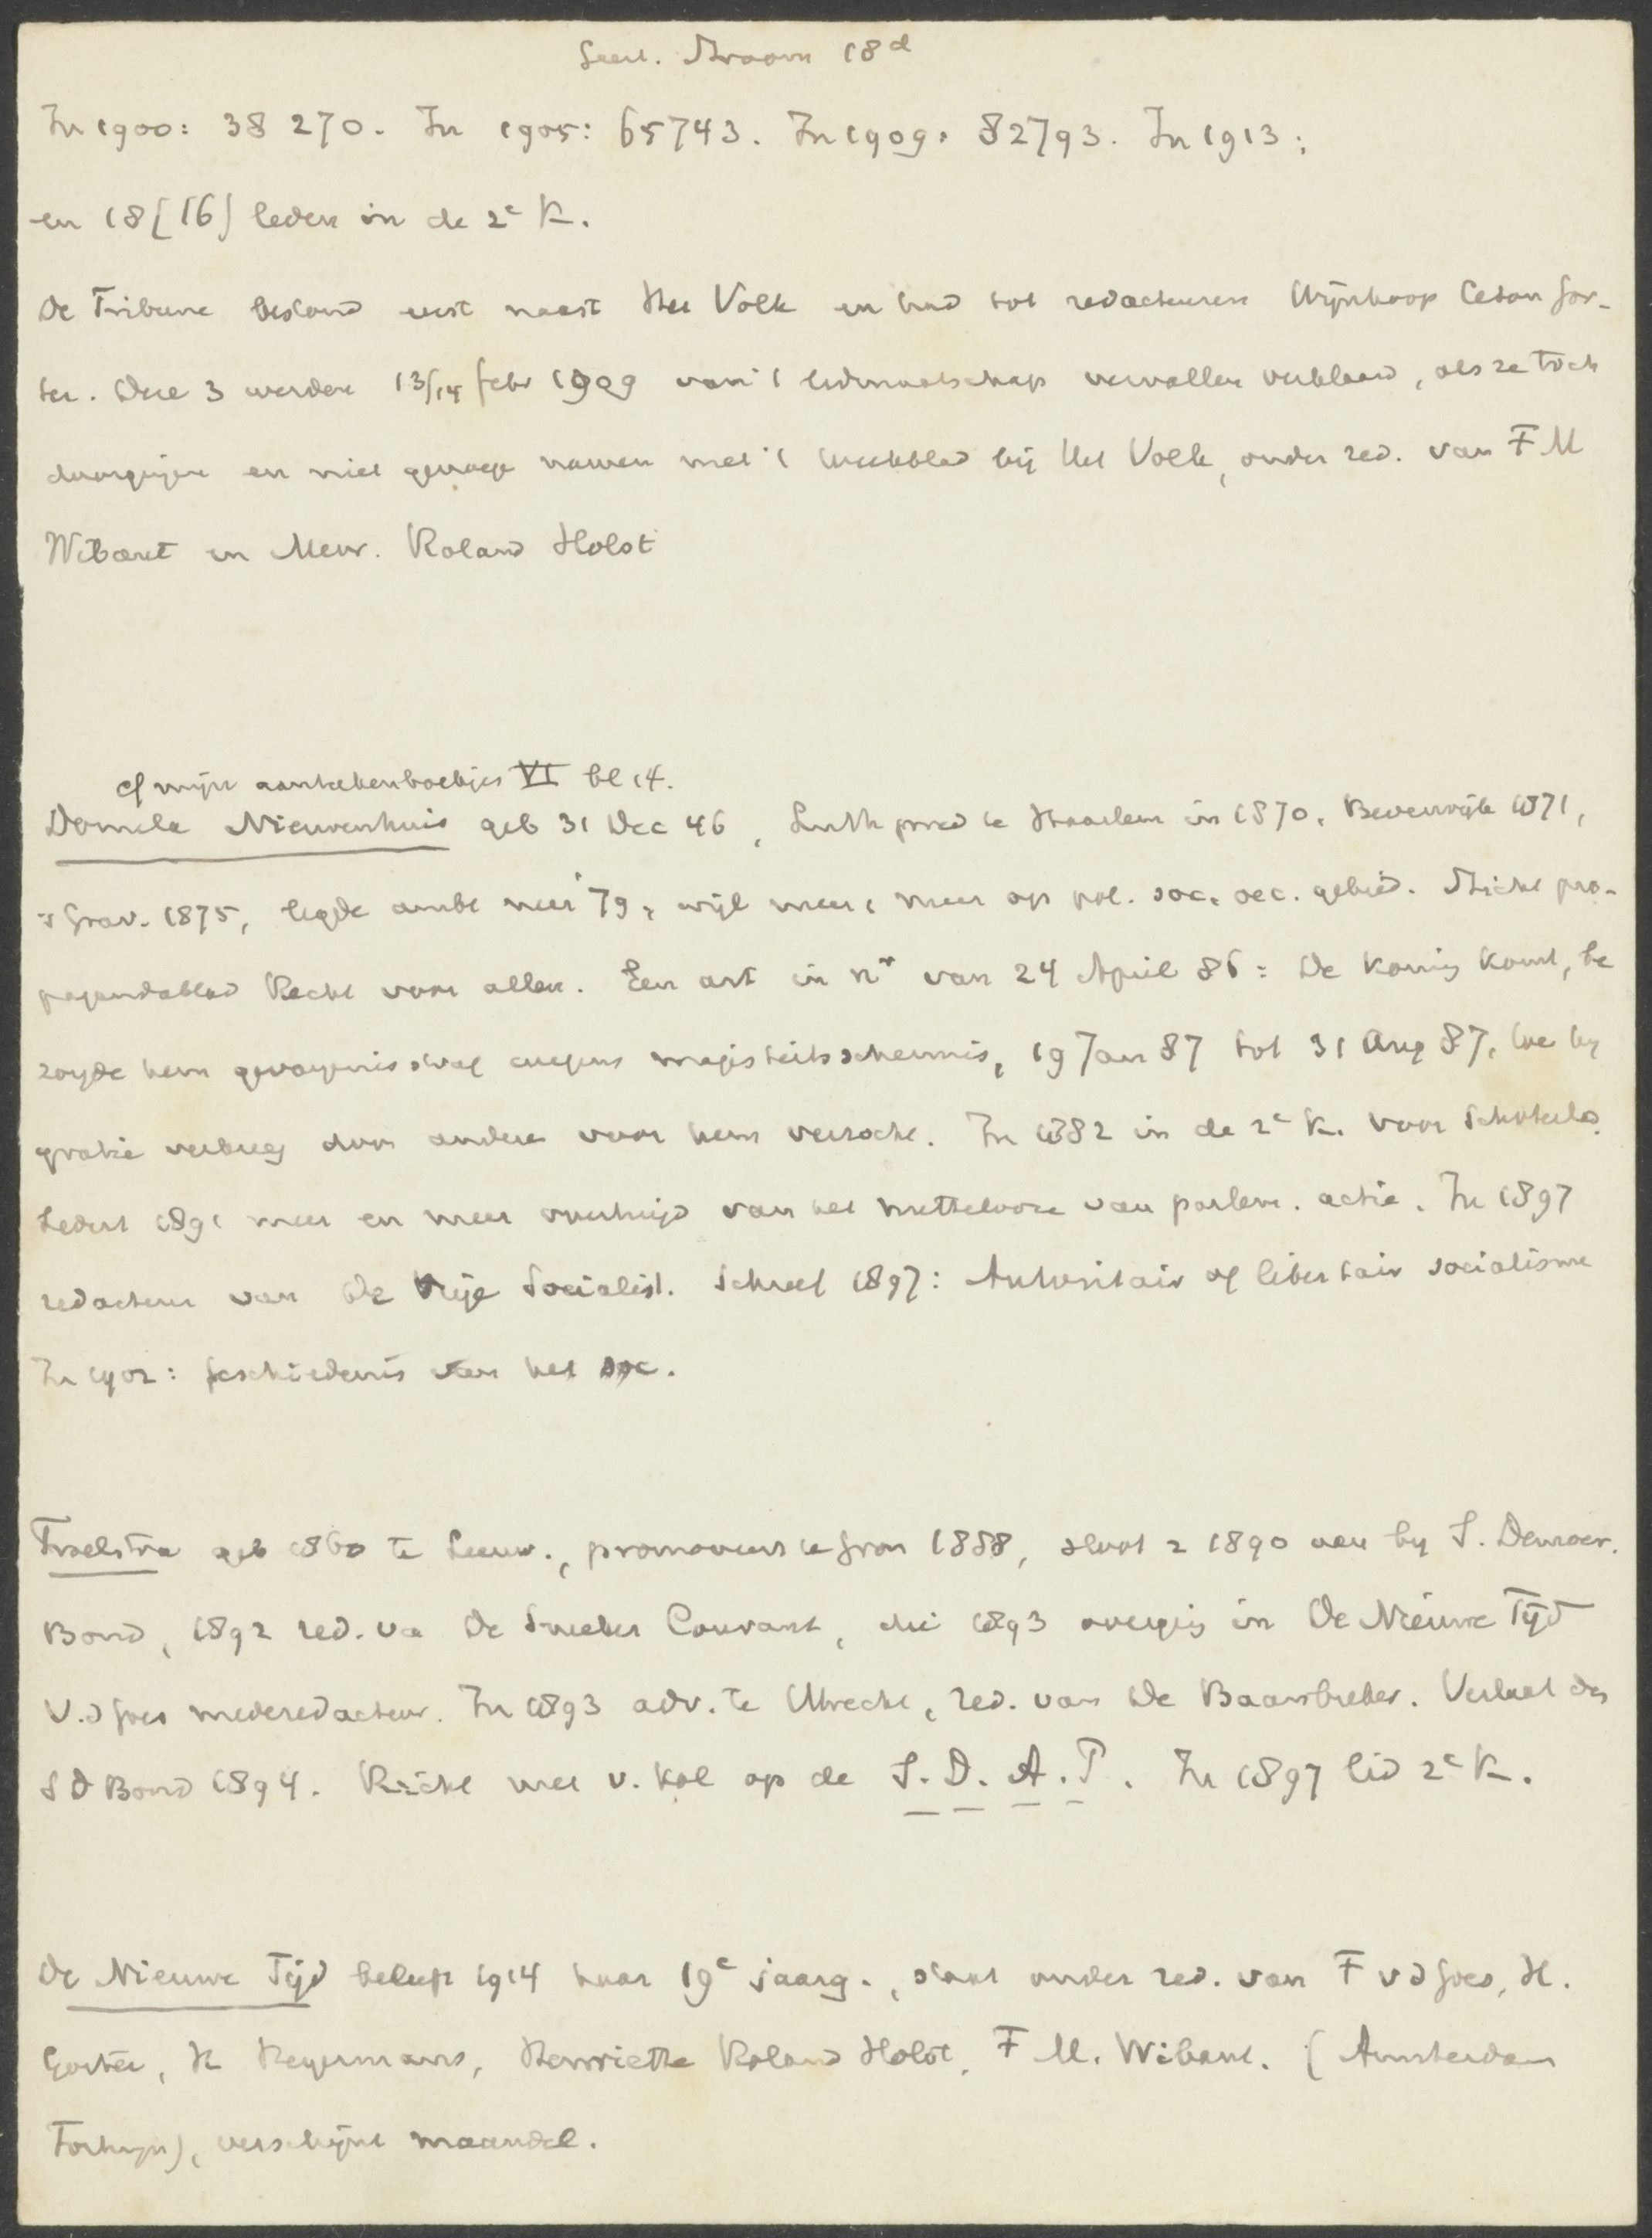 Geest. Stroom 18d
In 1900: 38 270. In 1905: 65743. In 1909: 82793. In 1913:
en 18 [16] leden in de 2e K.
De Tribune bestond eerst naast Het Volk en had tot redacteuren Wijnkoop Ceton Gor-
ter. Deze 3 werden 13/14 febr 1909 van 't lidmaatschap vervallen verklaard, als ze toch
doorgingen en niet genoegen namen met 't weekblad bij Het Volk, onder red. van F M
Wibaut en Mevr. Roland Holst
cf mijn aantekenboekjes VI bl 14.
Domela Nieuwenhuis geb 31 Dec 46, Luth pred te Haarlem in 1870, Beverwijk 1871,
's Grav. 1875, legde ambt neer '79, wijl meer & meer op pol. soc. oec. gebied. Sticht pro-
pagandablad Recht voor allen. Een art in nr van 24 April 86: De Koning komt, be
zorgde hem gevangenisstraf wegens majesteitsschennis, 19 Jan 87 tot 31 Aug 87, toe hy
gratie verkreeg door anderen voor hem verzocht. In 1882 in de 2e K. voor Schoterld.
Sedert 1891 meer en meer overtuigd van het nutteloze van parlem. actie. In 1897
redacteur van De Vrije Socialist. Schreef 1897: Autoritair of libertair socialisme
In 1902: Geschiedenis van het soc.
Troelstra geb 1860 te Leeuw., promoveert te Gron 1888, sloot z 1890 aan by S. Democr.
Bond, 1892 red. va De Sneeker Courant, die 1893 overging in De Nieuwe Tijd
V.d Goes mederedacteur. In 1893 adv. te Utrecht, red. van De Baanbreker. Verlaat den
S D Bond 1894. Richt met v. Kol op de S. D. A. P. In 1897 lid 2e K.
De Nieuwe Tijd beleeft 1914 haar 19e jaarg., staat onder red. van F v d Goes, H.
Gorter, H Heyermans, Henriette Roland Holst, F M. Wibaut. (Amsterdam
Fortuyn), verschijnt maandel.